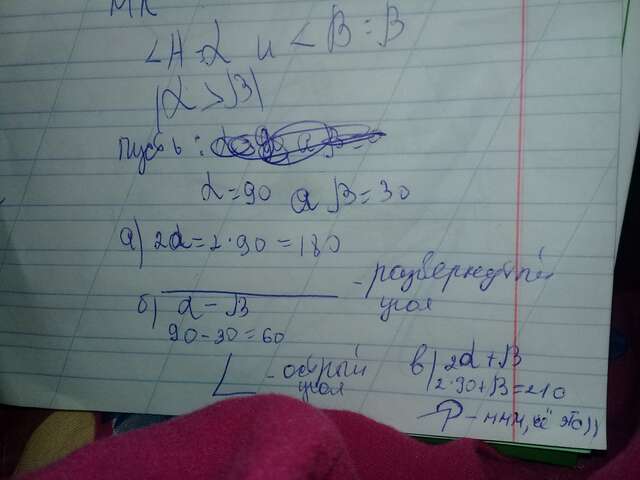 МК
<A=α и <B=β
|α>β|
пусть:
α=90 а β=30
а) 2α=2·90=180
- развернутый угол
б) α-β
90-30=60
- острый угол
в) 2α+β
2·90+β=210